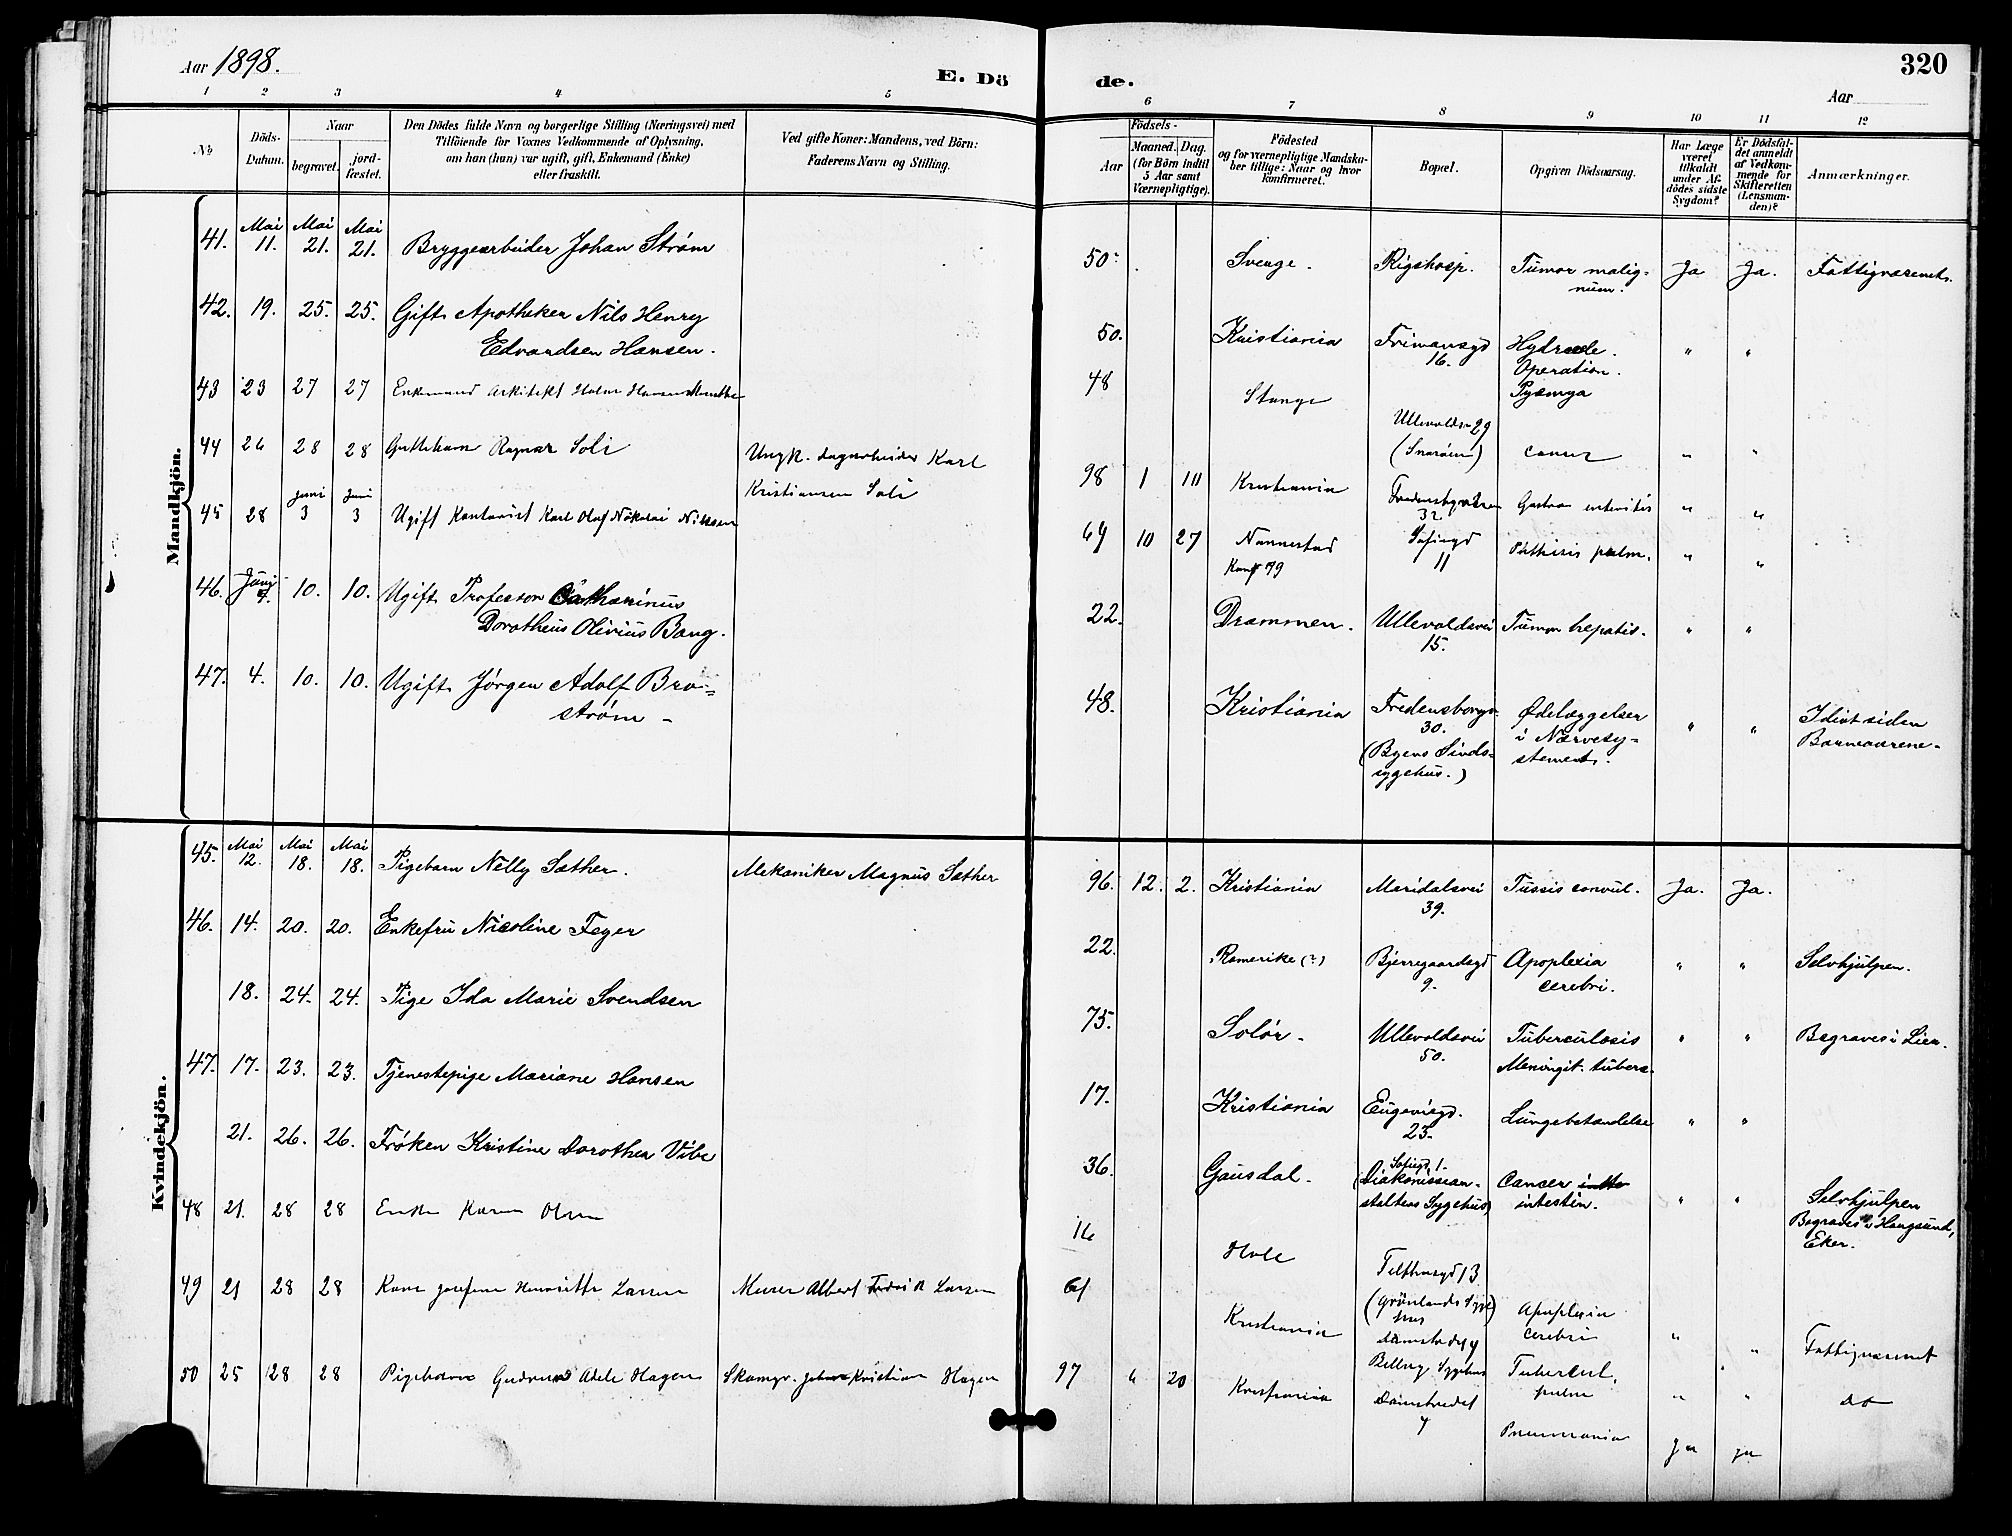 Aar 1898.
E. Dö
de.
320
Aar
1 2 3 4 5 6 7 8 9 10 11 12
No
Döds-
Datum.
Naar
begravet.
jord-
fæstet.
Den Dödes fulde Navn og borgerlige Stilling (Næringsvei) med
Tilföiende for Voxnes Vedkommende af Oplysning,
om han (hun) var ugift, gift, Enkemand (Enke)
eller fraskilt.
Ved gifte Koner: Mandens, ved Börn:
Faderens Navn og Stilling.
Födsels-
Aar
Maaned. Dag.
(for Börn indtil
5 Aar samt
Værnepligtige).
Födested
og for værnepligtige Mandska-
ber tillige: Naar og hvor
konfirmeret.
Bopæl.
Opgiven Dödsaarsag.
Har Læge
været
tilkaldt
under Af-
dödes sidste
Sygdom?
Er Dödsfal-
det anmeldt
af Vedkom-
mende for
Skifteretten
(Lensman-
den)?
Anmærkninger.
Mandkjön.
Mai Mai Mai
41. 11. 21. 21. Bryggearbeider Johan Strøm
50. Sverige. Rigshosp. Tumor malig-
num. Ja Ja. Fattigvæsenet.
42. 19. 25. 25. Gift Apotheker Nils Henry
Edvardsen Hansen.
50. Kristiania Frimansgd
16. Hydrocele.
Operation.
Pyæmya " "
43 23 27 27 Enkemand Arkitekt Holm Hansen Munthe
48 Stange Ullevoldsv 29
(Snarøen) cancer " "
44 26 28 28 Guttebarn Ragnar Soli
Ungk. dagarbeider Karl
Kristiansen Soli
98 1 10 Kristiania Fredensborgveien
32 Gastro enteritis " "
Juni Juni
45 28 3 3 Ugift Kontorist Karl Olaf Nikolai Nilssen
64 10 27 Nannestad
Konf 79 Sofiegd
11 Phthisis pulm. " "
46. Juni
4. 10. 10. Ugift Professor Catharinus
Dorotheus Olivius Bang.
22. Drammen. Ullevoldsvei
15. Tumor hepatis. " "
47. 4. 10. 10. Ugift Jørgen Adolf Bro-
strøm -
48. Kristiania Fredensborgv
30.
(Byens Sinds-
sygehus.) Ødelæggelser
i Nærvesy-
stemet. " " Idiot siden
Barneaarene.
Kvindekjön.
Mai Mai Mai
45. 12. 18. 18. Pigebarn Nelly Sæther. Mekaniker Magnus Sæther
96. 12. 2. Kristiania Maridalsvei
39. Tussis convul. Ja. Ja.
46. 14. 20. 20. Enkefru Nicoline Feyer
22. Romerike (?) Bjerregaardsgd
9. Apoplexia
cerebri. " " Selvhjulpen.
18. 24. 24. Pige Ida Marie Svendsen
75. Solør. Ullevoldsvei
50. Tuberculosis
Meningit. tuberc. " " Begraves i Lier.
47. 17. 23. 23. Tjenestepige Mariane Hansen
17. Kristiania Eugeniegd.
23. Lungebetændelse " "
21. 26. 26. Frøken Kristine Dorothea Vibe
36. Gausdal. Sofiegd. 1.
(Diakonissean-
staltens Sygehus) Cancer
intestin. " " Selvhjulpen
Begraves i Haugsund,
Eker.
48 21. 28 28 Enke Karen Olsen
16 Hole Telthusgd 13
(Grönlands Syge
hus Apoplexia
cerebri " " Fattigvæsenet
49 21 28 28 Kone Josefine Henriette Larsen Murer Albert Fredrik Larsen
61 Kristiania Damstredet 4
Sygehus Tubercul.
pulm " " do
50 25 28 28 Pigebarn Gudrun Adele Hagen Skomgr. Johan Kristian Hagen
97 4 20 Kristiania Damstredet
4 Pneumonia ja ja